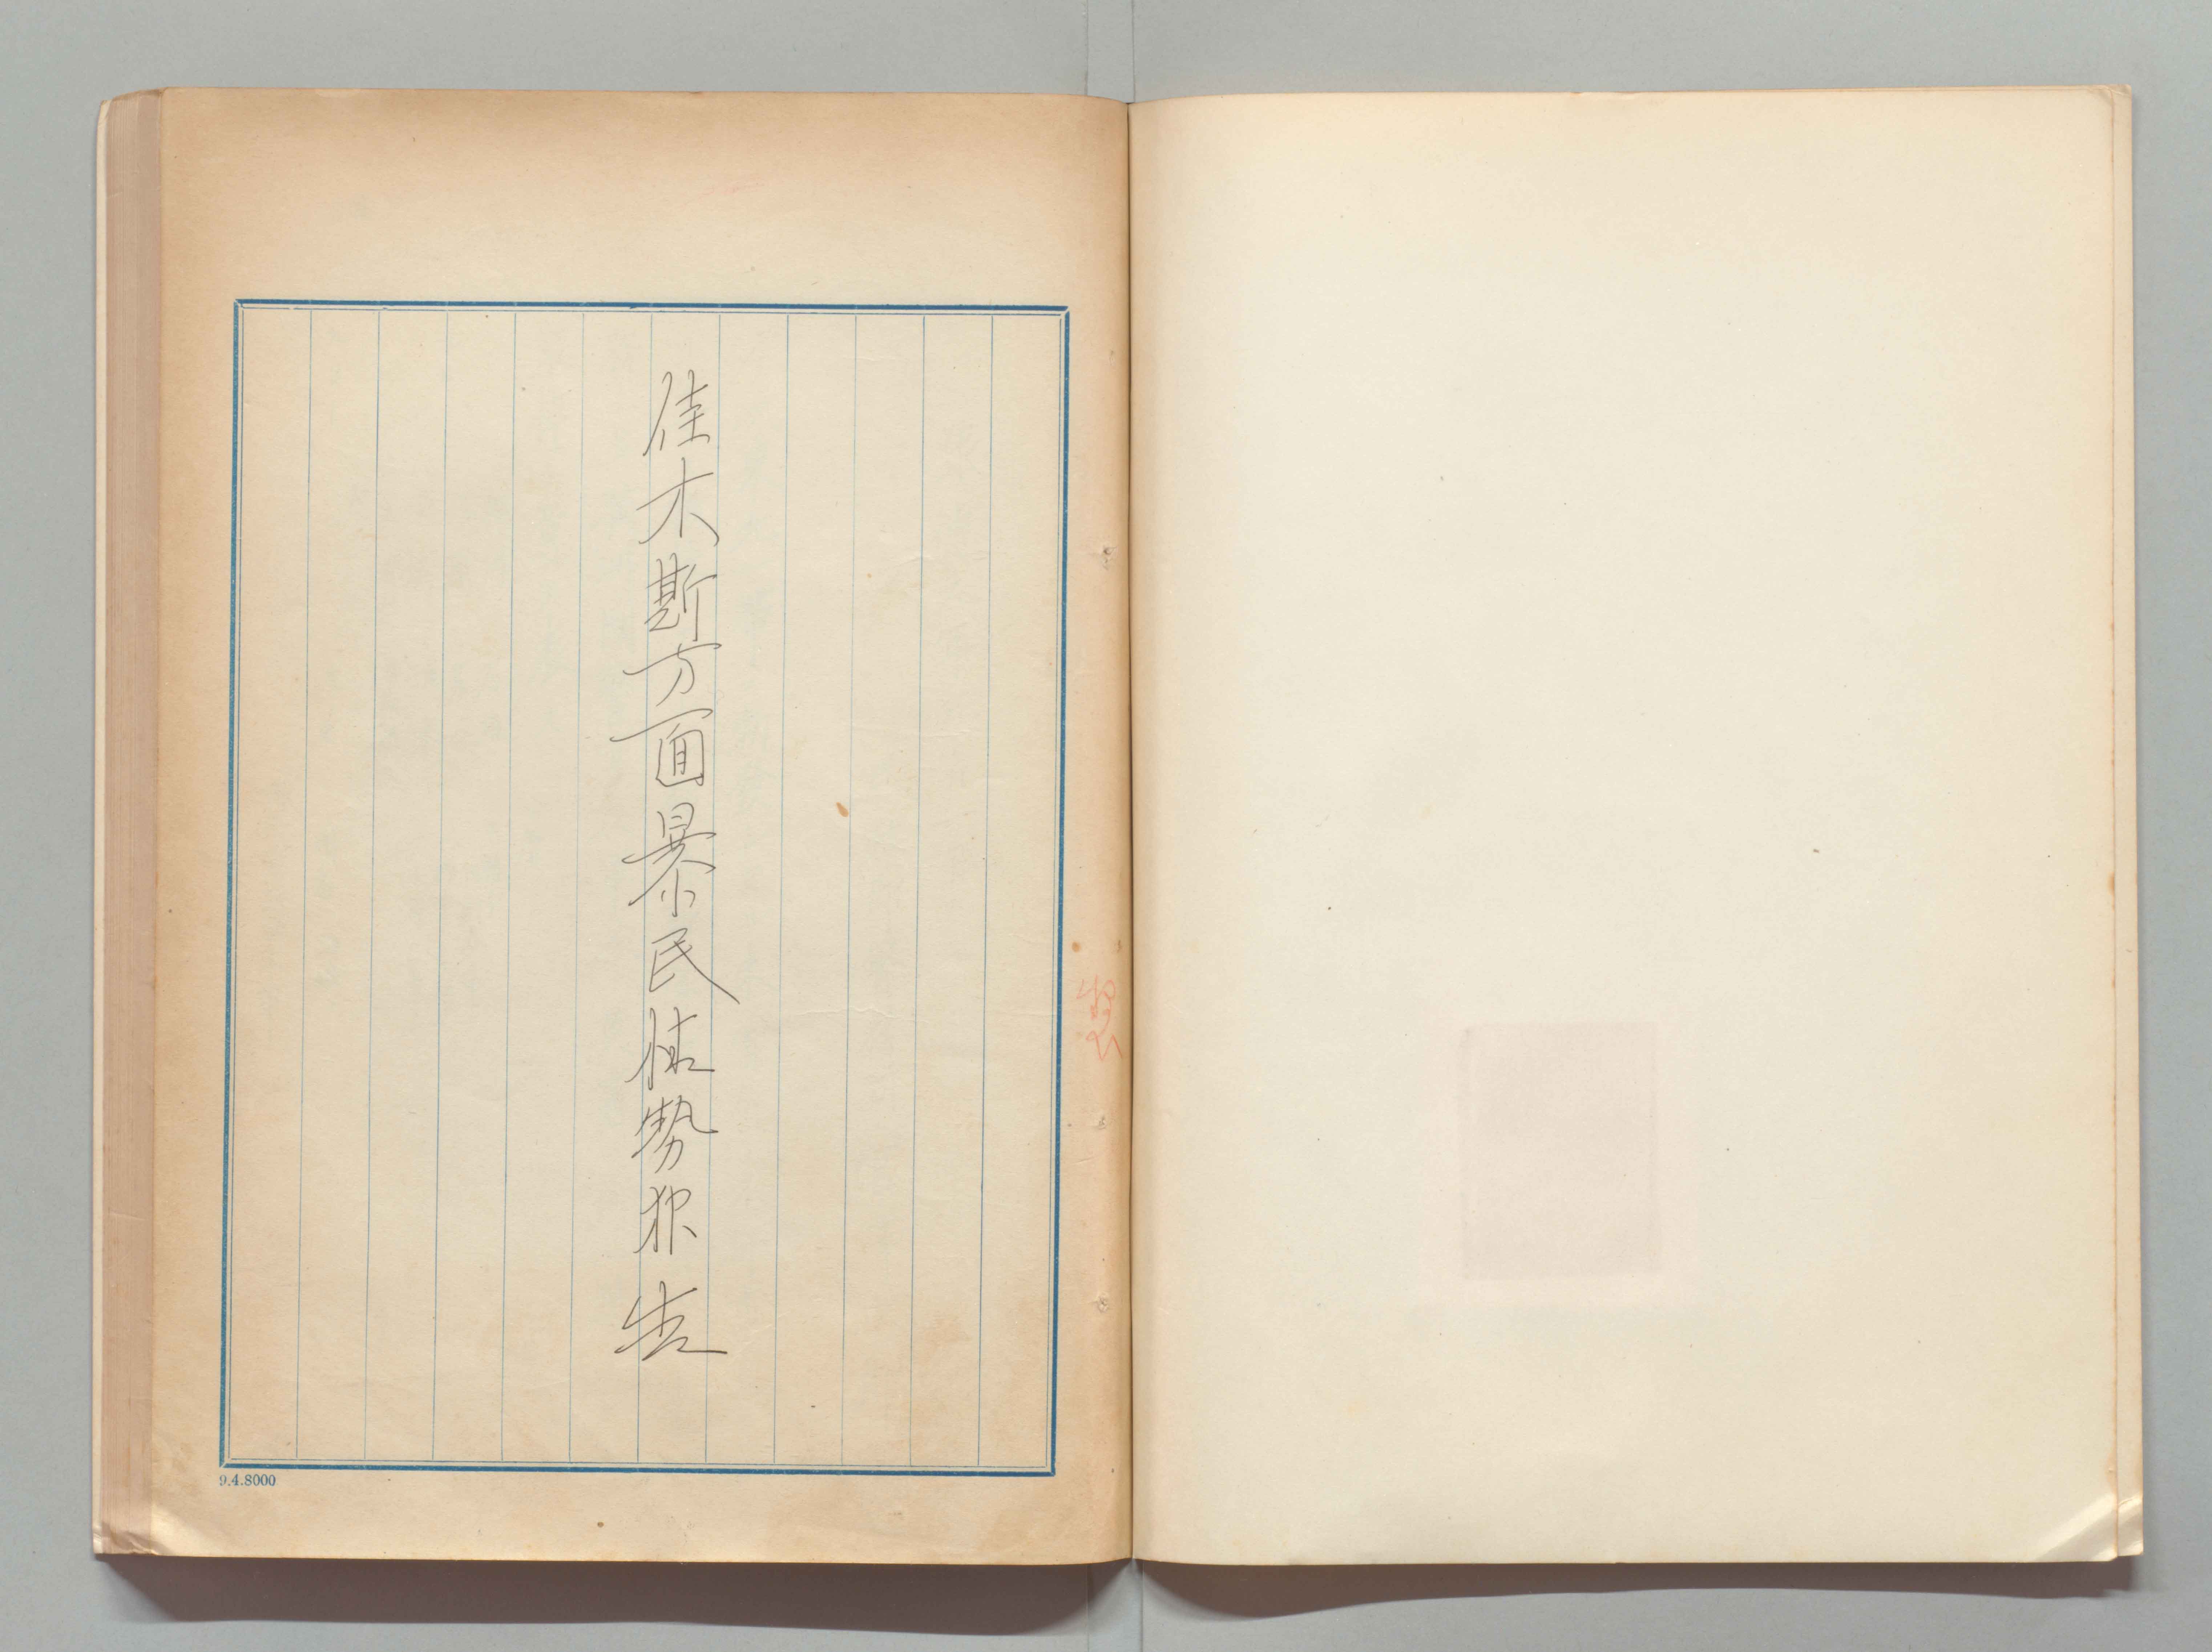 佳木斯方面暴民情勢報告
9.4.8000